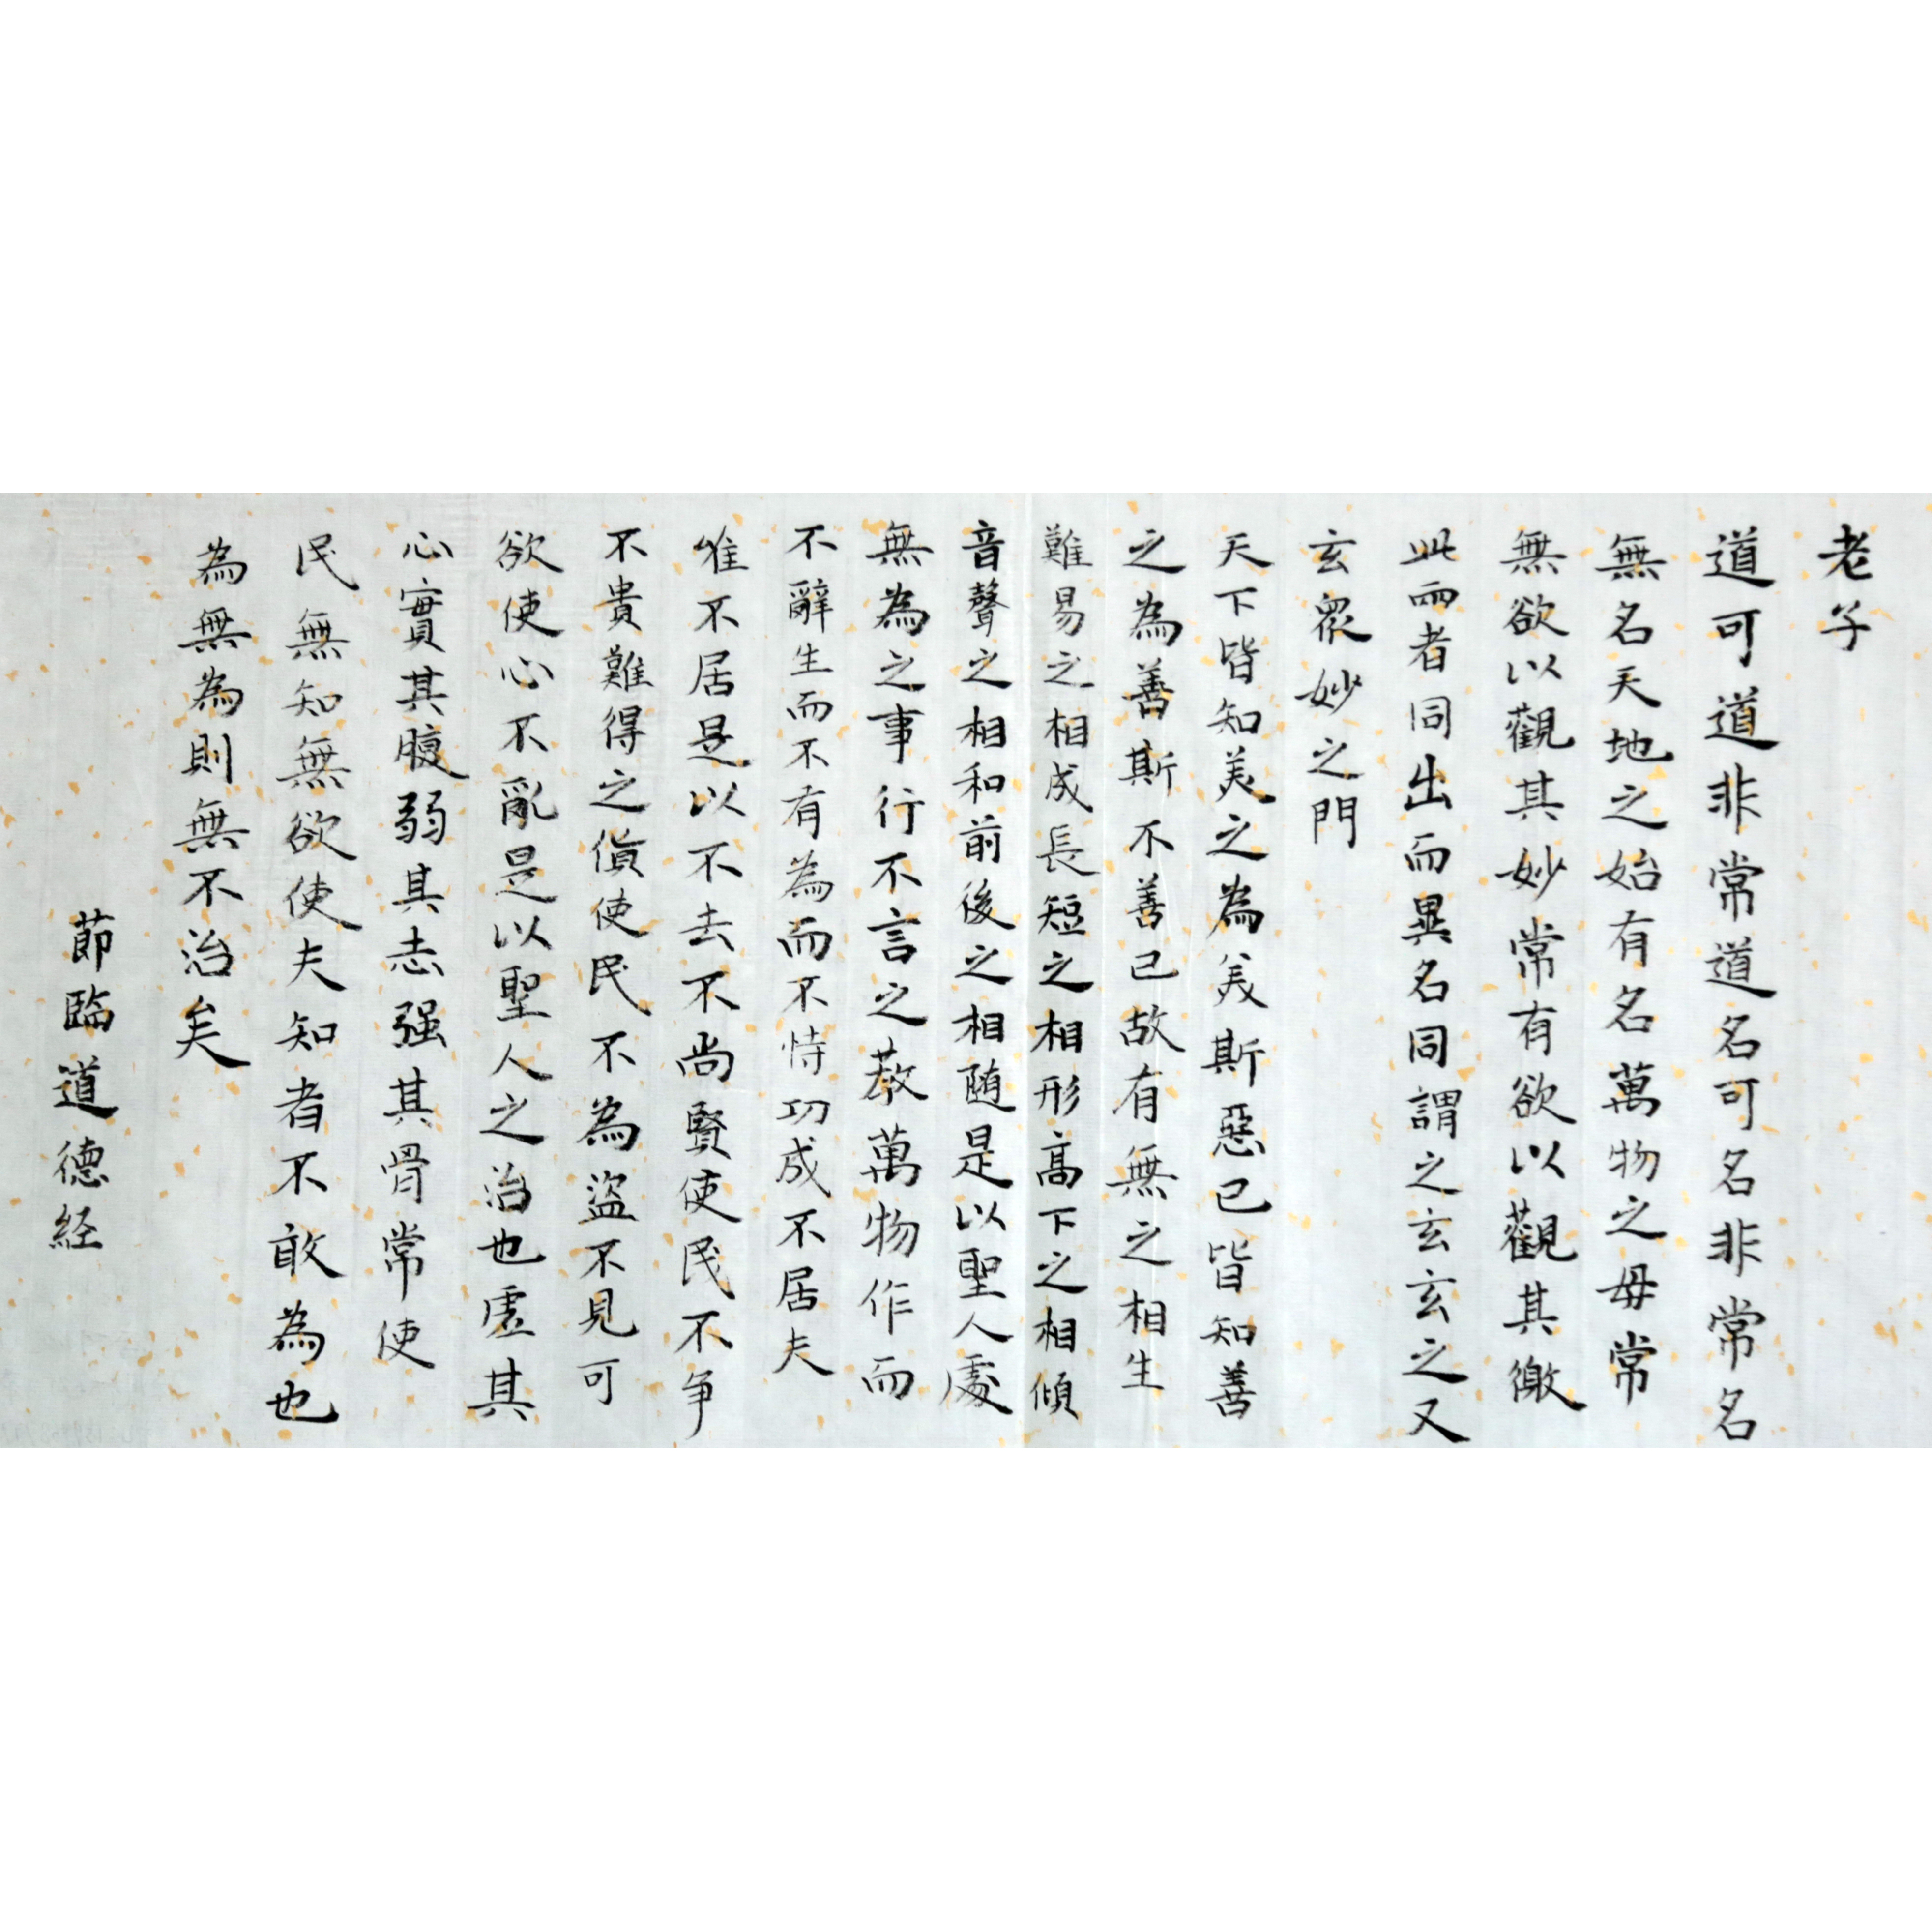 老子
道可道非常道名可名非常名
無名天地之始有名萬物之母常
無欲以觀其妙常有欲以觀其徼
此兩者同出而異名同謂之玄玄之又
玄眾妙之門
天下皆知美之為美斯惡已皆知善
之為善斯不善已故有無之相生
難易之相成長短之相形高下之相傾
音聲之相和前後之相随是以聖人處
無為之事行不言之教萬物作而
不辭生而不有為而不恃功成不居夫
唯不居是以不去不尚賢使民不争
不貴難得之貨使民不為盜不見可
欲使心不亂是以聖人之治也虛其
心實其腹弱其志强其骨常使
民無知無欲使夫知者不敢為也
為無為則無不治矣
莭臨道德経